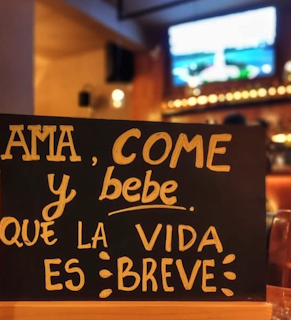 AMA, COME
y bebe.
QUE LA VIDA
ES BREVE